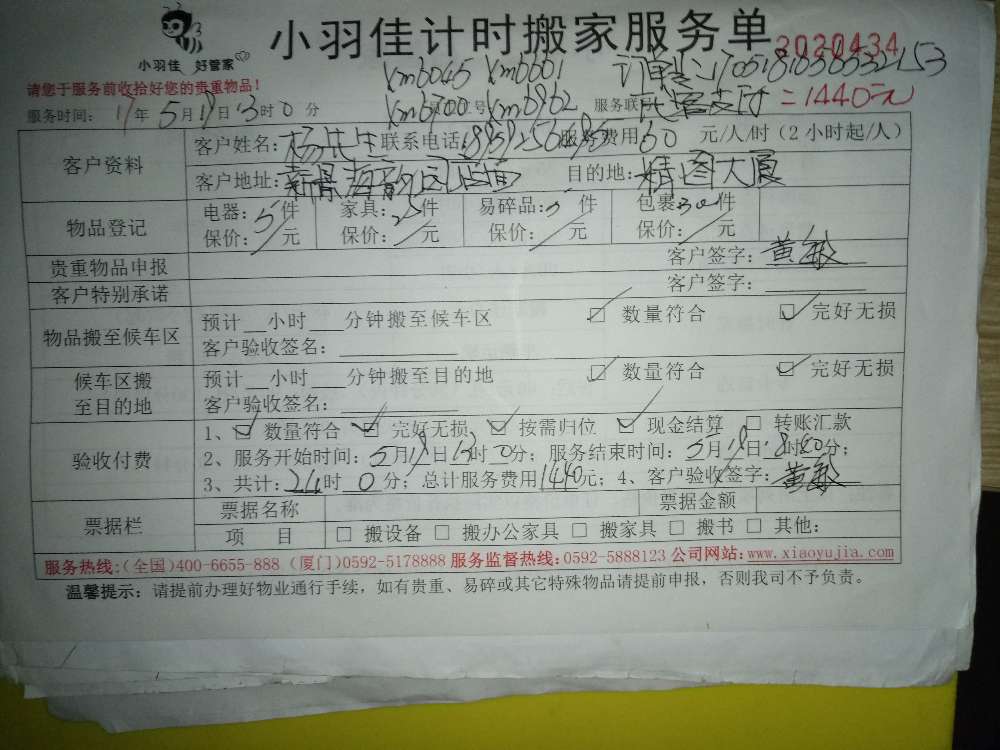 小羽佳计时搬家服务单
小羽佳 好管家
3020434
请您于服务前收拾好您的贵重物品!
xm6045 xm6601
xm6700 xm6962
=1440元
服务时间: 17年5月19日13时0分 服务联
客户资料
客户姓名: 杨先生 联系电话: 服务费用60元/人/时(2小时起/人)
客户地址: 目的地: 精图大厦
物品登记
电器: 5件 家具: 25件 易碎品: 件 包裹: 30件
保价: 元 保价: 元 保价: 元 保价: 元
贵重物品申报 客户签字: 黄敏
客户特别承诺 客户签字:
物品搬至候车区
预计__小时___分钟搬至候车区 ☑ 数量符合 ☑ 完好无损
客户验收签名:
候车区搬至目的地
预计__小时___分钟搬至目的地 ☑ 数量符合 ☑ 完好无损
客户验收签名:
验收付费
1、☑ 数量符合 ☑ 完好无损 ☑ 按需归位 ☑ 现金结算 □ 转账汇款
2、服务开始时间: 5月19日13时0分; 服务结束时间: 5月19日18时 分;
3、共计: 24时0分; 总计服务费用1440元; 4、客户验收签字: 黄敏
票据栏
票据名称 票据金额
项 目 □ 搬设备 □ 搬办公家具 □ 搬家具 □ 搬书 □ 其他:
服务热线:(全国)400-6655-888 (厦门)0592-5178888 服务监督热线:0592-5888123 公司网站:www.xiaoyujia.com
温馨提示: 请提前办理好物业通行手续，如有贵重、易碎或其它特殊物品请提前申报，否则我司不予负责。